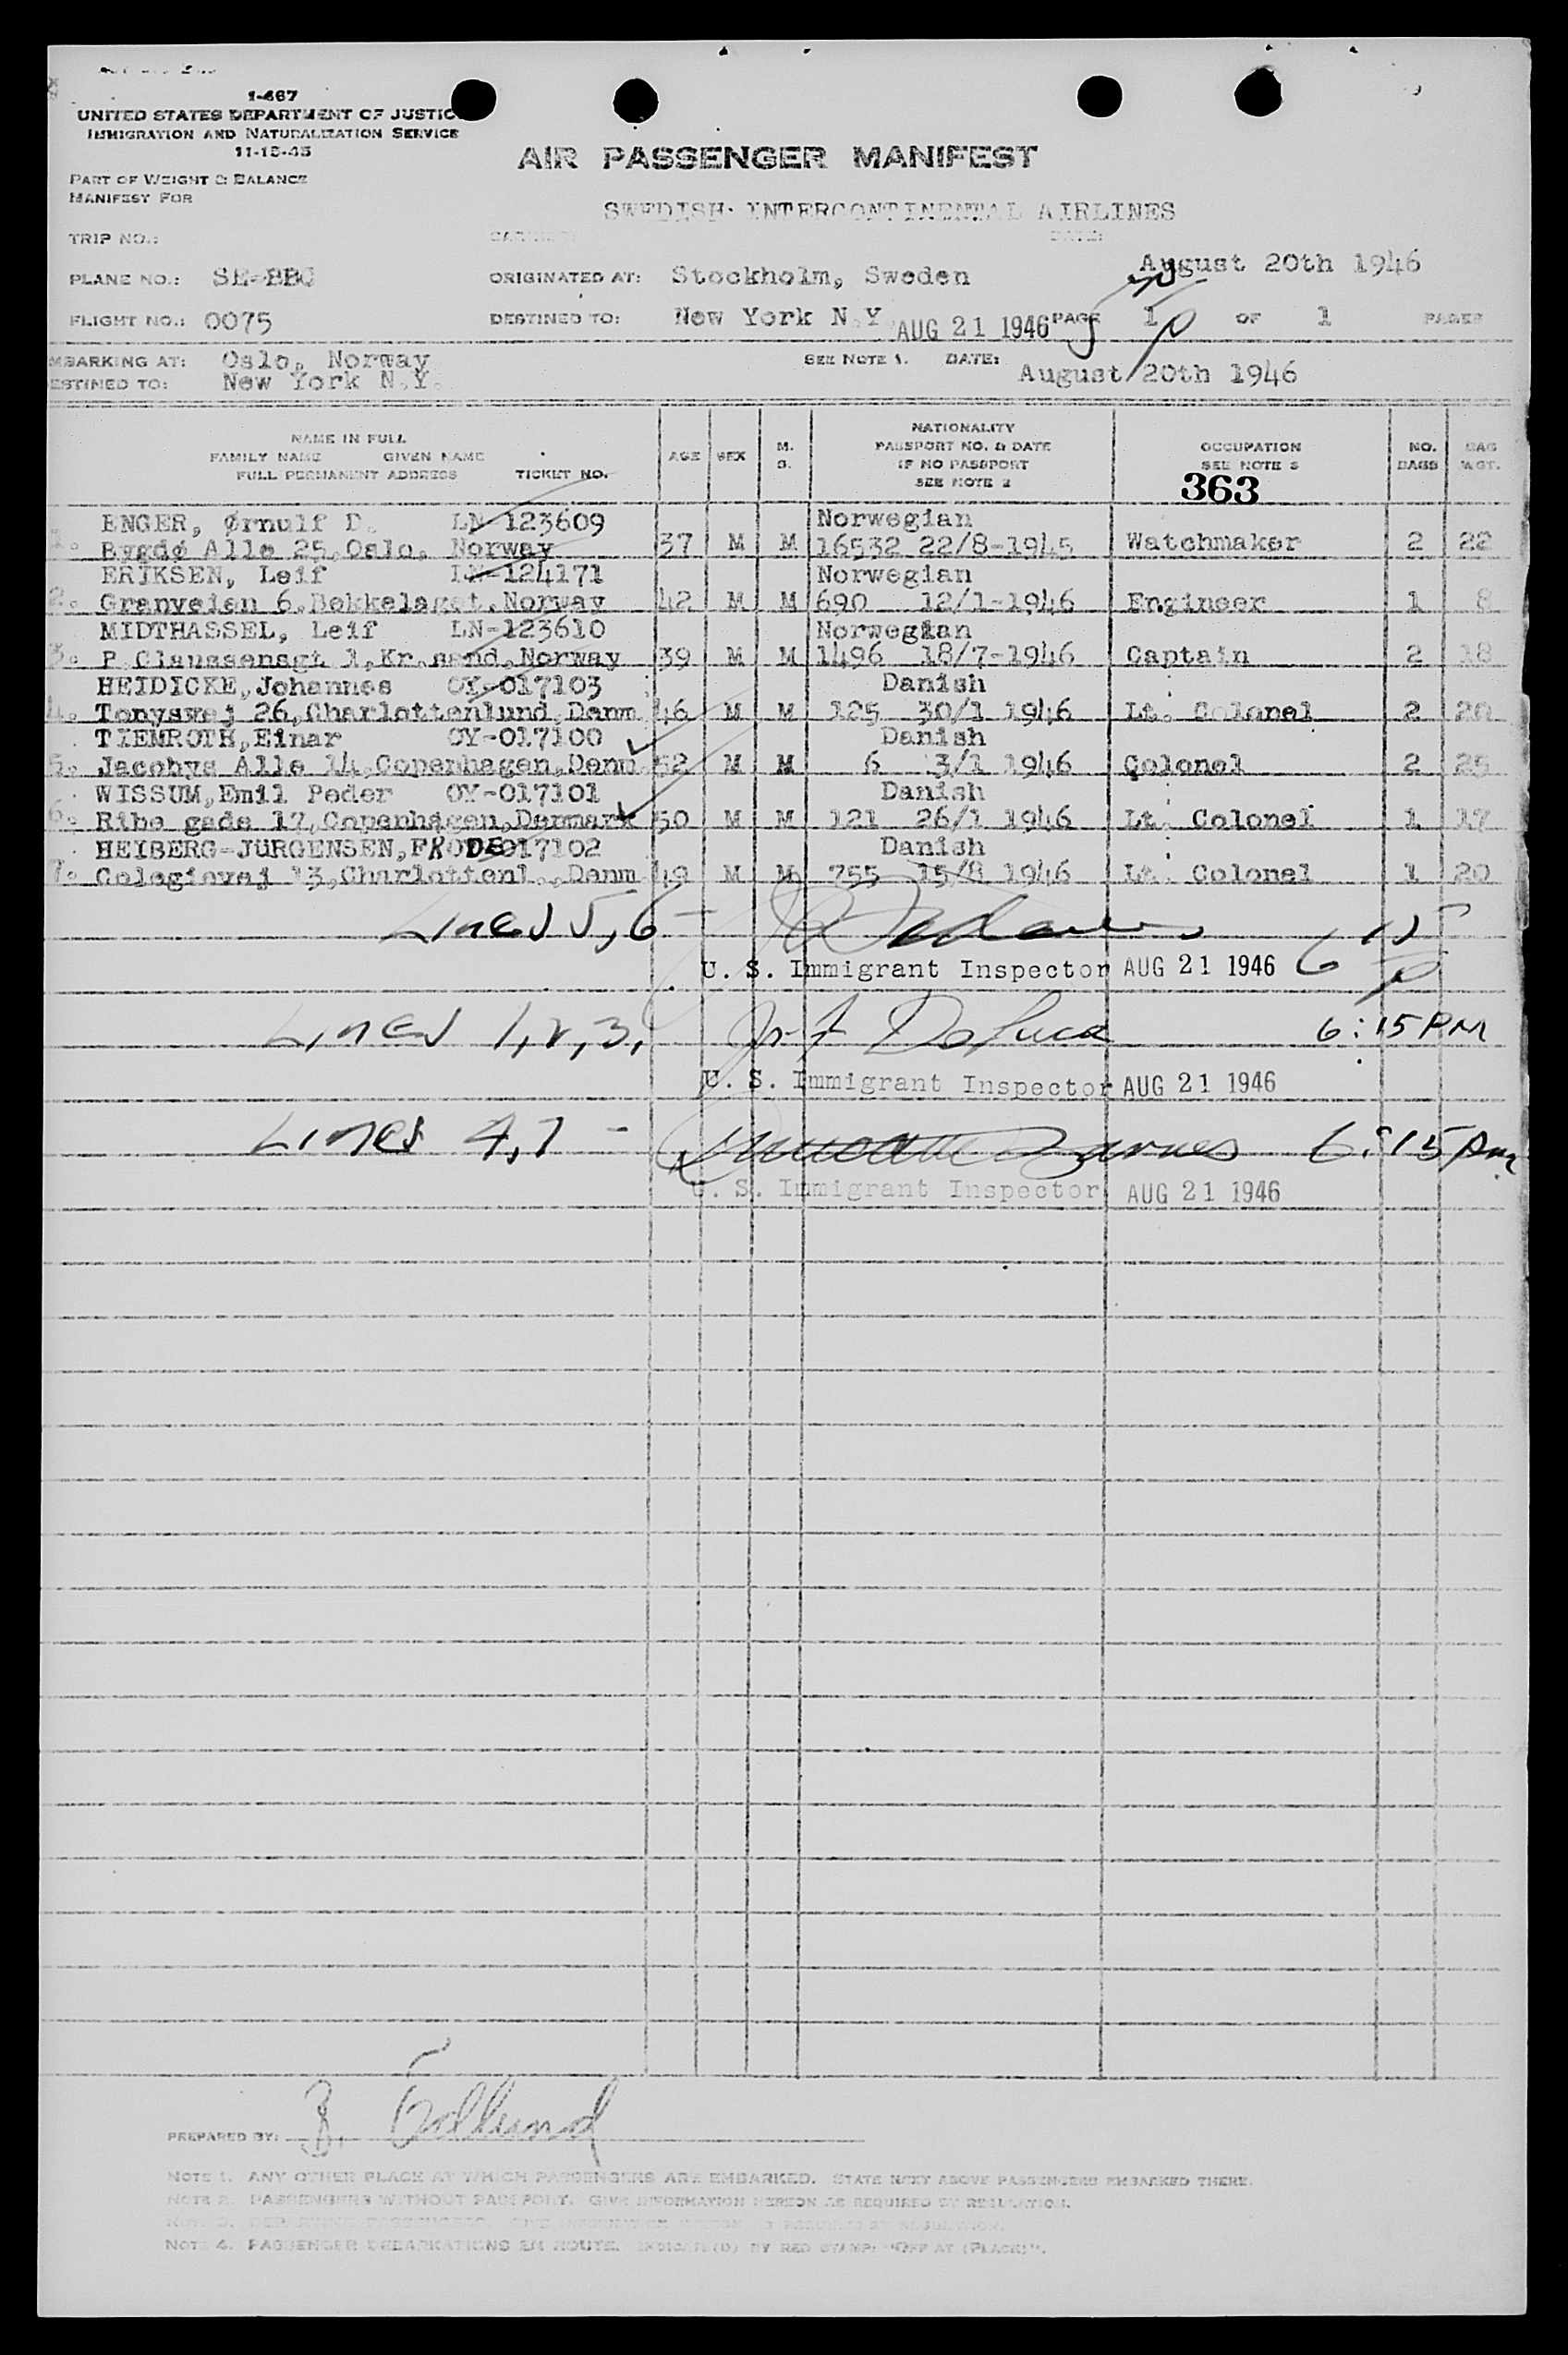 1-467
UNITED STATES DEPARTMENT OF JUSTIC
IMMIGRATION AND NATURALIZATION SERVICE
11-15-45
AIR PASSENGER MANIFEST
PART OF WEIGHT & BALANCE
MANIFEST FOR
SWEDISH INTERCONTINENTAL AIRLINES
TRIP NO.: DATE:
August 20th 1946
PLANE NO.: SE-BBC ORIGINATED AT: Stockholm, Sweden
FLIGHT NO.: 0075 DESTINED TO: New York N.Y. AUG 21 1946 PAGE 1 OF 1 PAGES
MBARKING AT: Oslo, Norway SEE NOTE 1. DATE:
ESTINED TO: New York N.Y. August 20th 1946
NAME IN FULL
FAMILY NAME GIVEN NAME
FULL PERMANENT ADDRESS TICKET NO. AGE SEX M. S. NATIONALITY PASSPORT NO. & DATE IF NO PASSPORT SEE NOTE 2 OCCUPATION SEE NOTE 3 NO. BAGS BAG WGT.
363
ENGER, Ørnulf D. LN-123609 Norwegian
1. Bygdø Alle 25, Oslo, Norway 37 M M 16532 22/8-1945 Watchmaker 2 22
ERIKSEN, Leif LN-124171 Norwegian
2. Granveien 6, Bekkelaget, Norway 42 M M 690 12/1-1946 Engineer 1 8
MIDTHASSEL, Leif LN-123610 Norwegian
3. P Clausensgt 1, Kr. sand, Norway 39 M M 1496 18/7-1946 Captain 2 18
HEIDICKE, Johannes OY-017103 Danish
4. Tonysvej 26, Charlottenlund, Danm 46 M M 125 30/1 1946 Lt. Colonel 2 20
TIEMROTH, Einar OY-017100 Danish
5. Jacobys Alle 14, Copenhagen, Denm. 52 M M 6 3/1 1946 Colonel 2 25
WISSUM, Emil Peder OY-017101 Danish
6. Ribe gade 17, Copenhagen, Denmark 50 M M 121 26/1 1946 Lt. Colonel 1 17
HEIBERG-JÜRGENSEN, FRODE 017102 Danish
7. Cologievej 13, Charlottenl., Danm 49 M M 755 15/8 1946 Lt. Colonel 1 20
Lines 5, 6 - 6 15 P
U. S. Immigrant Inspector AUG 21 1946
Lines 1, 2, 3, DeLuca 6:15 PM
U. S. Immigrant Inspector AUG 21 1946
Lines 4, 7 - Barnes 6:15 PM
U. S. Immigrant Inspector AUG 21 1946
PREPARED BY: B. Edlund
NOTE 1. ANY OTHER PLACE AT WHICH PASSENGERS ARE EMBARKED. STATE NEXT ABOVE PASSENGERS EMBARKED THERE.
NOTE 2. PASSENGERS WITHOUT PASSPORT. GIVE INFORMATION HEREON AS REQUIRED BY REGULATION.
NOTE 4. PASSENGER DEBARKATIONS EN ROUTE. INDICATE(D) BY RED STAMP: "OFF AT (PLACE)".